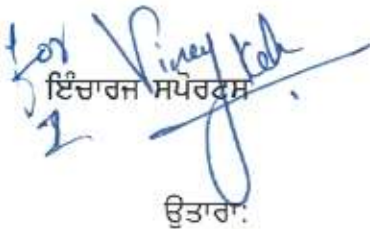 for Vinay
ਇੰਚਾਰਜ ਸਪੋਰਟਸ
ਉਤਾਰਾ: